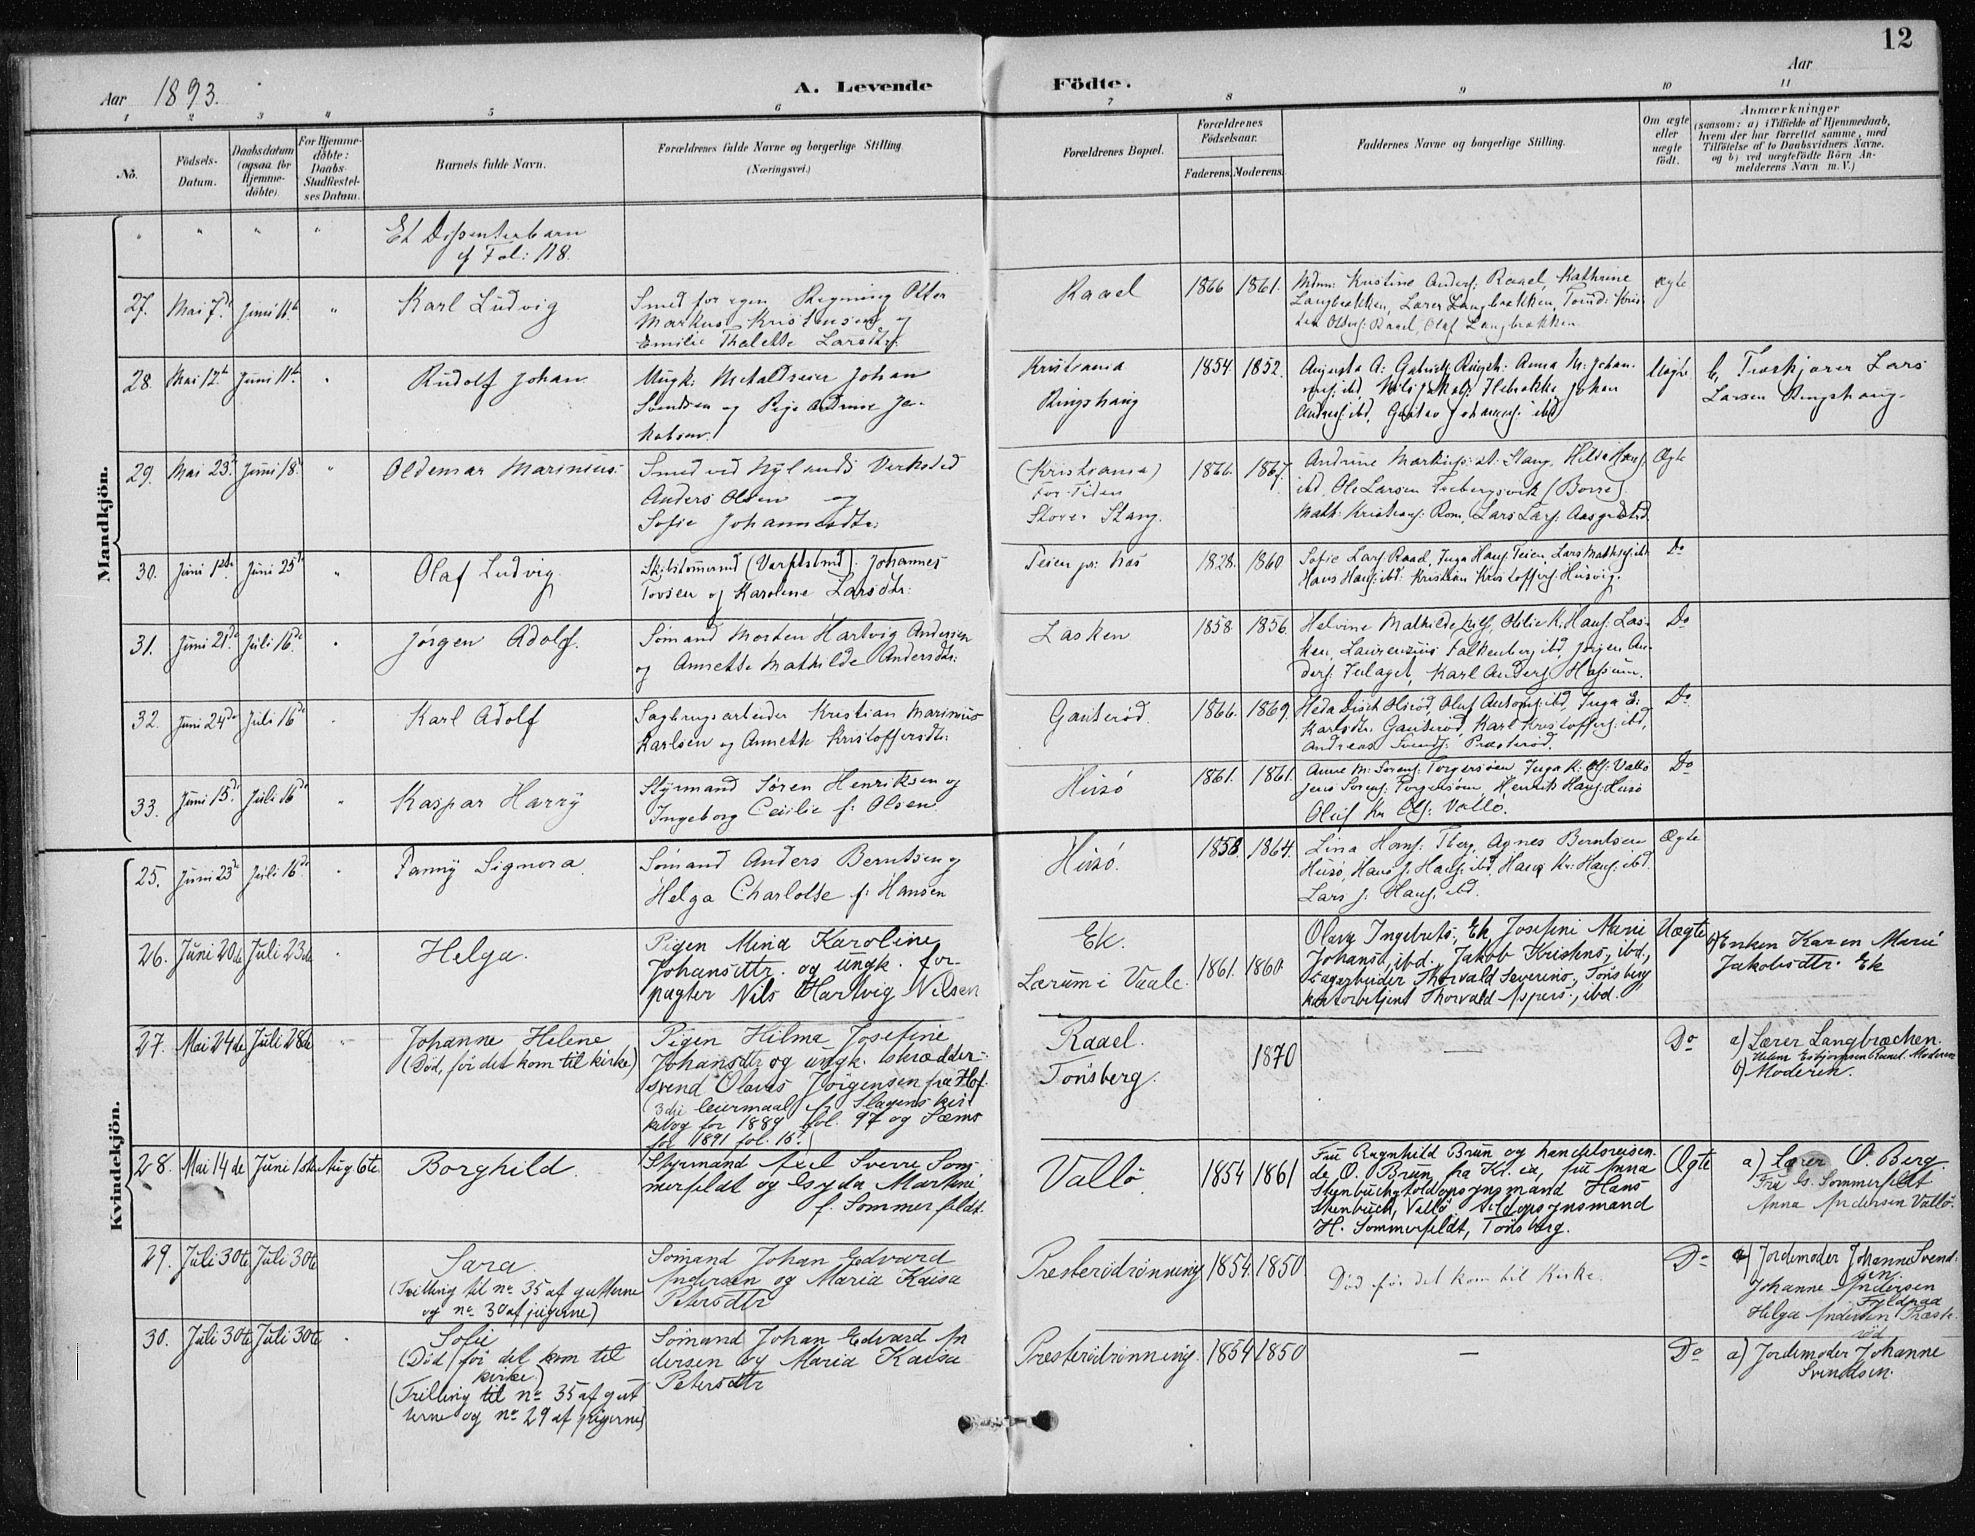 12
Aar 1893.
A. Levende Födte.
Aar
1 2 3 4 5 6 7 8 9 10 11
No.
Födsels-Datum.
Daabsdatum (ogsaa for Hjemme-döbte)
For Hjemme-döbte: Daabs-Stadfæstel-ses Datum.
Barnets fulde Navn.
Forældrenes fulde Navne og borgerlige Stilling (Næringsvei.)
Forældrenes Bopæl.
Forældrenes Födselsaar.
Faderens. Moderens.
Faddernes Navne og borgerlige Stilling.
Om ægte eller uægte födt.
Anmærkninger
(saasom: a) i Tilfælde af Hjemmedaab,
hvem der har forrettet samme, med
Tilföielse af to Daabsvidners Navne.
og b) ved uægtefödte Börn An-
melderens Navn m. V.)
Mandkjön.
" " " " Et Dissenterbarn
cf Fol: 118.
27. Mai 7de Juni 11te " Karl Ludvig
Smed for egen Regning Otter
Markus Kristensen og
Emilie Thalette Larsdtr:
Raael 1866 1861.
Kristine Anders: Raael, Kathrine
Langbrekken, Lærer Langbrekken,
Raael, Olaf Langbrekken
ægte
28. Mai 12te Juni 11te " Rudolf Johan
Ungk: Metaldreier Johan
Svendsen og Pige Andrine Ja-
kobsen.
Kristiania
Ringshaug
1854 1852.
Augusta A: Gabriels: Ringsh: Anna M: Johan-
Johan
Anders: ibd, Gustav Johanns: ibd
Uægte
b, Lars
Larsen Ringshaug.
29. Mai 23de Juni 18. " Oldemar Marinius.
Smed ved Nylands Verksted
Anders Olsen og
Sofie Johannesdtr:
(Kristiania)
For Tiden
Stang.
1866. 1867.
Andrine Martins: st: Stang, Hilda Hans:
ibd, Ole Larsen Trebergsvik (Borre)
Math: Kristians: Rom, Lars Lars:
Ægte
30. Juni 1ste Juni 25te " Olaf Ludvig.
Johannes
Tovsen og Karoline Larsdtr:
Teien pr: Nes
1828. 1860
Sofie Lars: Raad, Inga Hans: Teien, Lars Mathis: ibd
Hans Hans: ibd: Kristian Kristoffers: Husvig.
Do
31. Juni 21de Juli 16de " Jørgen Adolf.
Sömand Morten Hartvig Andersen
og Annette Mathilde Andersdtr:
Lasken
1858 1856.
Helvine Mathilde Oblie K. Hans: Las-
ken, Laurenzius Falkenberg ibd, Jørgen An-
ders: Karl Anders:
Do
32. Juni 24de Juli 16de Karl Adolf
Sagbrugsarbeider Kristian Marinius
Karlsen og Annette Kristoffersdtr:
Gauterød.
1866. 1869.
Olsrød, Oluf Antons: ibd, Inga L.
Karlsdtr: Gauterød, Karl Kristoffers: ibd,
Andreas Svends: Præsterød.
Do
33. Juni 15de Juli 16de " Kaspar Harry
Styrmand Søren Henriksen og
Ingeborg Cecilie f: Olsen
Husö
1861. 1861.
Anne M: Sorens: Torgersøen, Inga K: Ols: Vallö
Jens Sorens: Torgersøen, Henrik Hans: Husö
Oluf Kr Ols: Vallö.
Do
Kvindekjön.
25. Juni 23de Juli 16de Fanny Signora.
Sömand Anders Berntsen og
Helga Charlotte f: Hansen
Husö.
1858. 1864.
Lina Hans: Agnes Berntsen
Husö, Hans J. Hans: ibd, Hans Kr: Hans: ibd.
Lars J. Hans: ibd.
Ægte
26. Juni 20de Juli 23de Helga
Pigen Mina Karoline
Johansdtr. og ungk. for-
pagter Nils Hartvig Nilsen
Ek.
Lærum i Vaale.
1861. 1860.
Olava Ingebrets:, Ek, Josefine Marie
Johansd, ibd., Jakob Kristens, ibd.,
Thorvald Severins, Tönsberg
kontorbetjent Thorvald Aspers., ibd.
Uægte
b) Enken Karen Marie
Jakobsdtr. Ek
27. Mai 24de Juli 28de " Johanne Helene
(Död, før det kom til kirke)
Pigen Hilma Josefine
Johansdtr og ungk. skrædder-
svend Olaus Jörgensen fra Hof.
(3dje leiermaal, f. Slagens kir-
kebog for 1889 fol. 97 og Sems
for 1891 fol. 15.)
Raael.
Tönsberg.
1870
—
Do
a) Lærer Langbræchen.
Helene Esbjornsen Raael. Moderen
b) Moderen.
28. Mai 14de Juni 1ste Aug 6te Borghild.
Styrmand Axel Sverre Som-
merfeldt og Gyda Martine
f. Sommerfeldt.
Vallö.
1854 1861
Fru Ragnhild Brun og handelsreisen-
de O. Brun fra Kr.ia, fru Anna
Stenbuch, toldopsynsmand Hans
Stenbuch, Vallö, toldopsynsmand
H. Sommerfeldt, Tönsberg.
Ægte
a) Lærer O. Berg.
Fru G. Sommerfeldt
Anna Andersen Vallö.
29. Juli 30te Juli 30te Sara.
(Trilling til no. 35 af gutterne
og no. 30 af pigerne)
Sömand Johan Edvard
Andersen og Maria Kaisa
Petersdtr
Presterødrönning
1854. 1850.
Död før det kom til Kirke.
Do
a) Jordemoder Johanne Svend-
sen.
Johanne Andersen
Helga Andersen Præste-
röd
30. Juli 30te Juli 30te Sofie
(Död, før det kom til
kirke.)
(Trilling til no. 35 af gut-
terne og no. 29 af pigerne)
Sömand Johan Edvard An-
dersen og Maria Kaisa
Petersdtr
Præsterødrönning.
1854 1850
—
Do
a) Jordemoder Johanne
Svendsen.